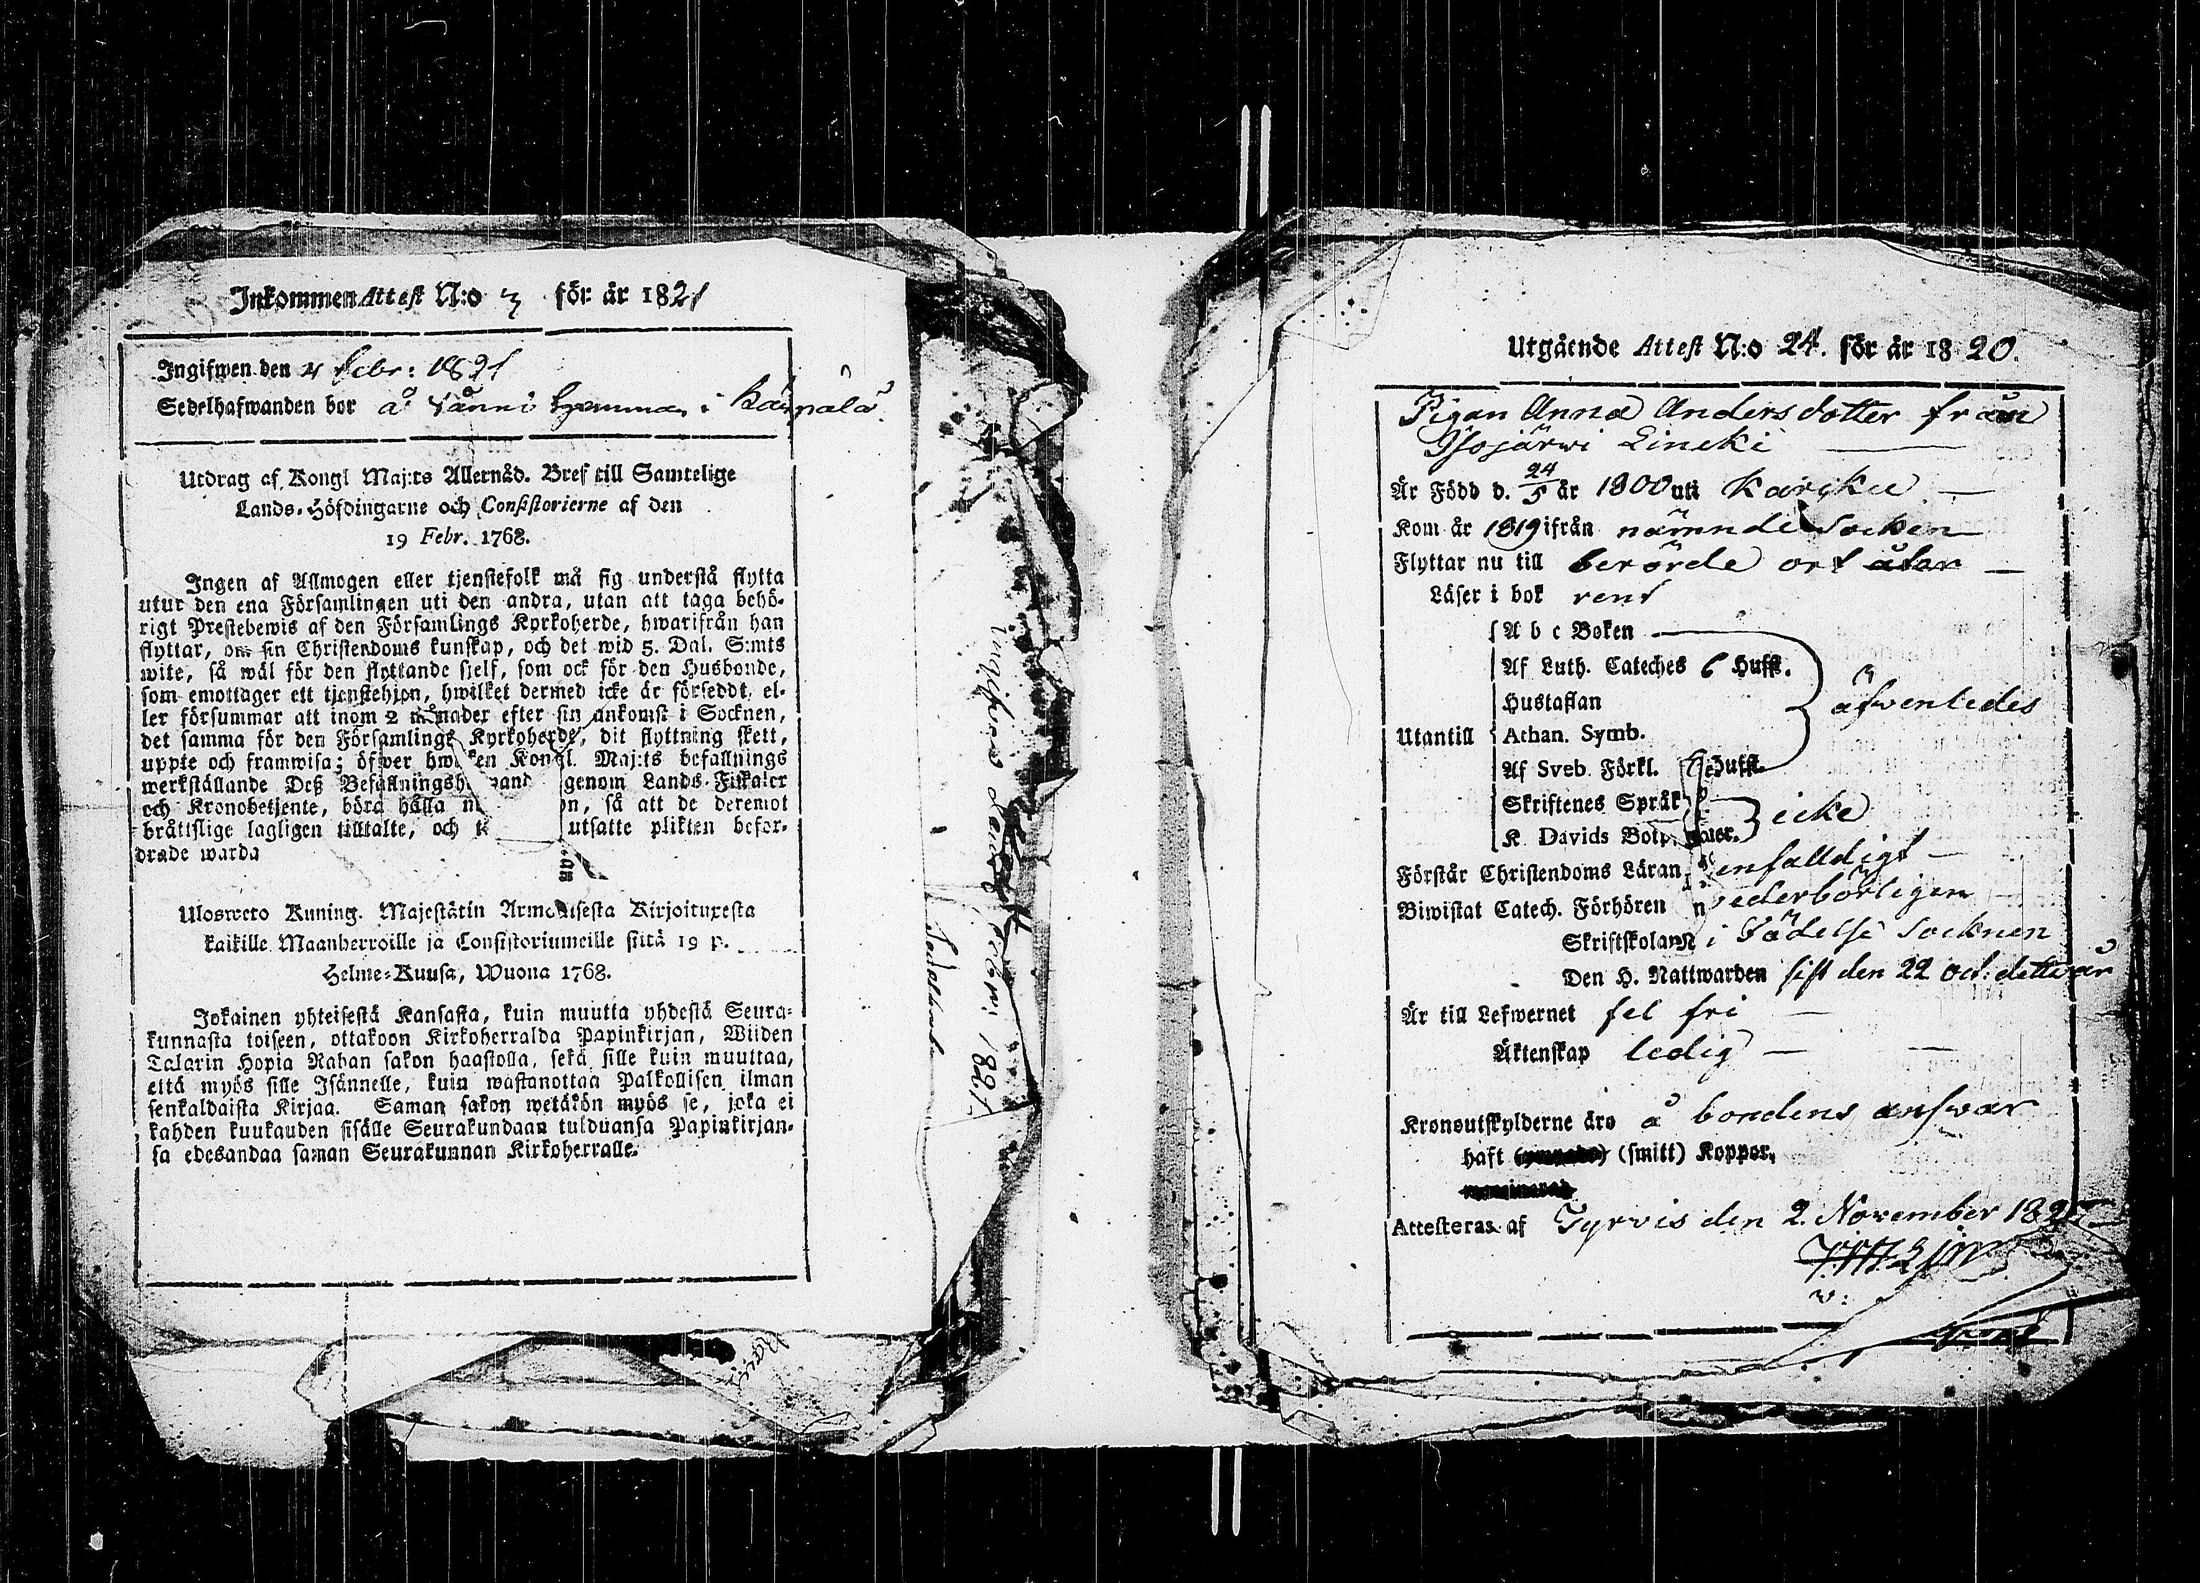 Inkommen Attest N:o 3 för år 1821
Ingifwen den 4 Febr: 1821
Sedelhafwanden bor å Nänni hemman i Karpala
Utdrag af Kongl Maj:ts Allernåd. Bref till Samtelige
Lands-Höfdingarne och Consistorierne af den
19 Febr. 1768.
Ingen af Allmogen eller tjenstefolk må sig understå flytta
utur den ena Församlingen uti den andra, utan att taga behö-
rigt Prestebewis af den Församlings Kyrkoherde, hwarifrån han
flyttar, om sin Christendoms kunskap, och det wid 5. Dal. S:mts
wite, så wäl för den flyttande sjelf, som ock för den Husbonde,
som emottager ett tjenstehjon, hwilket dermed icke är försedt, el-
ler försummar att inom 2 månader efter sin ankomst i Socknen,
det samma för den Församlings Kyrkoherde, dit flyttning skett,
uppte och framwisa; öfwer hwilken Kongl. Maj:ts befallnings
werkställande Deß Befallningshafwande genom Lands-Fiskaler
och Kronobetjente, böra hålla n on, så att de deremot
bråttslige lagligen tilltalte, och utsatte plikten befor-
drade warda
Ulosweto Kuning. Majestätin Armollisesta Kirjoituxesta
kaikille Maanherroille ja Consistoriumeille siitä 19 p.
Helme-Kuusa, Wuona 1768.
Jokainen yhteisestä Kansasta, kuin muutta yhdestä Seura-
kunnasta toiseen, ottakoon Kirkoherralda Papinkirjan, Wiiden
Talarin Hopia Rahan sakon haastolla, sekä sille kuin muuttaa,
että myös sille Isännelle, kuin wastanottaa Palkollisen ilman
senkaldaista Kirjaa. Saman sakon wetäkön myös se, joka ei
kahden kuukauden sisälle Seurakundaan tulduansa Papinkirjan-
sa edesandaa saman Seurakunnan Kirkoherralle.
ingifwes den 1821
Utgående Attest N:o 24. för år 1820.
Pigan Anna Andersdotter från
Isojärwi Lineki
Är Född d. 24/5 år 1800 uti Karkku
Kom år 1819 ifrån nämnde Socken
Flyttar nu till berörde ort åter
Läser i bok rent
A b c Boken
Af Luth. Cateches 6 Hufst.
Hustaflan äfwenledes
Utantill Athan. Symb.
Af Sveb. Förkl. Hufst.
Skriftenes Språk icke
K. Davids Botpsalmer.
Förstår Christendoms Läran enfalldigt
Biwistat Catech. Förhören wederbörligen
Skriftskolan i Födelse Socknen
Den H. Nattwarden sist den 22 oct: detta år
Är till Lefwernet fel fri
Äktenskap ledig
Kronoutskylderne äro å bondens answar
haft (smitt) Koppor.
Attesteras af Tyrvis den 2. November 1820
v: